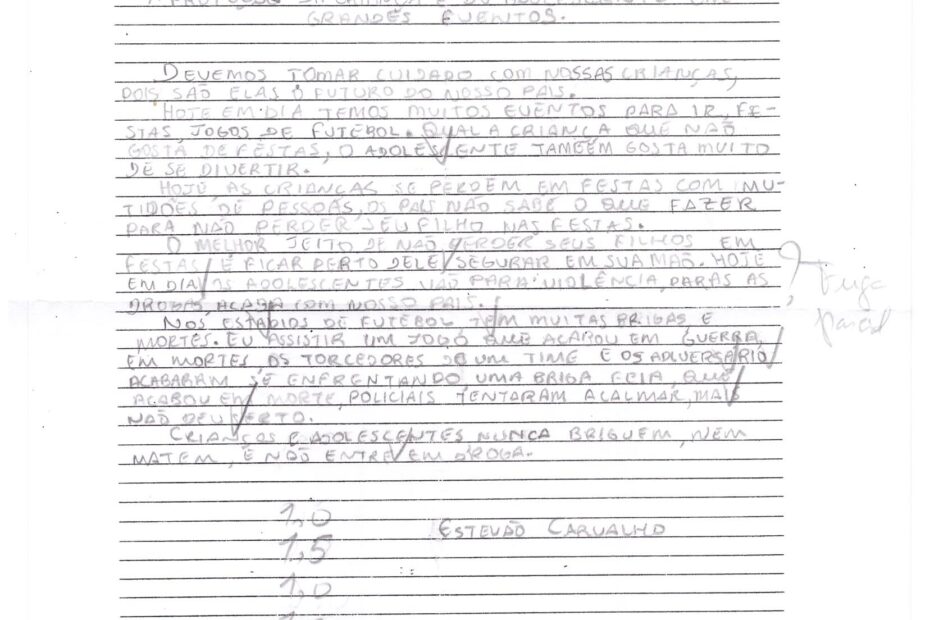 GRANDES EVENTOS.
DEVEMOS TOMAR CUIDADO COM NOSSAS CRIANÇAS,
POIS SÃO ELAS O FUTURO DO NOSSO PAIS.
HOJE EM DIA TEMOS MUITOS EVENTOS PARA IR, FE-
STAS, JOGOS DE FUTEBOL. QUAL A CRIANÇA QUE NÃO
GOSTA DE FESTAS, O ADOLESCENTE TAMBÉM GOSTA MUITO
DE SE DIVERTIR.
HOJE, AS CRIANÇAS SE PERDEM EM FESTAS COM MU-
TIDÕES DE PESSOAS, OS PAIS NÃO SABE O QUE FAZER
PARA NÃO PERDER SEU FILHO NAS FESTAS.
O MELHOR JEITO DE NÃO PERDER SEUS FILHOS EM
FESTAS É FICAR PERTO DELE SEGURAR EM SUA MÃO. HOJE
EM DIA OS ADOLESCENTES VÃO PARA VIOLÊNCIA, PARAS AS
DROGAS, ACABA COM NOSSO PAIS.
NOS ESTADIOS DE FUTEBOL, TEM MUITAS BRIGAS E
MORTES. EU ASSISTIR UM JOGO QUE ACABOU EM GUERRA,
EM MORTES, OS TORCEDORES DE UM TIME E OS ADVERSERIO
ACABARAM SE ENFRENTANDO, UMA BRIGA FEIA, QUE
ACABOU EM MORTE, POLICIAIS TENTARAM ACALMAR, MAIS
NÃO DEU SERTO.
CRIANÇOS E ADOLESCENTES NUNCA BRIGUEM, NEM
MATEM, E NÃO ENTRE EM DROGA.
?
Fuga
parcial
1,0
ESTEVÃO CARVALHO
1,5
1,0